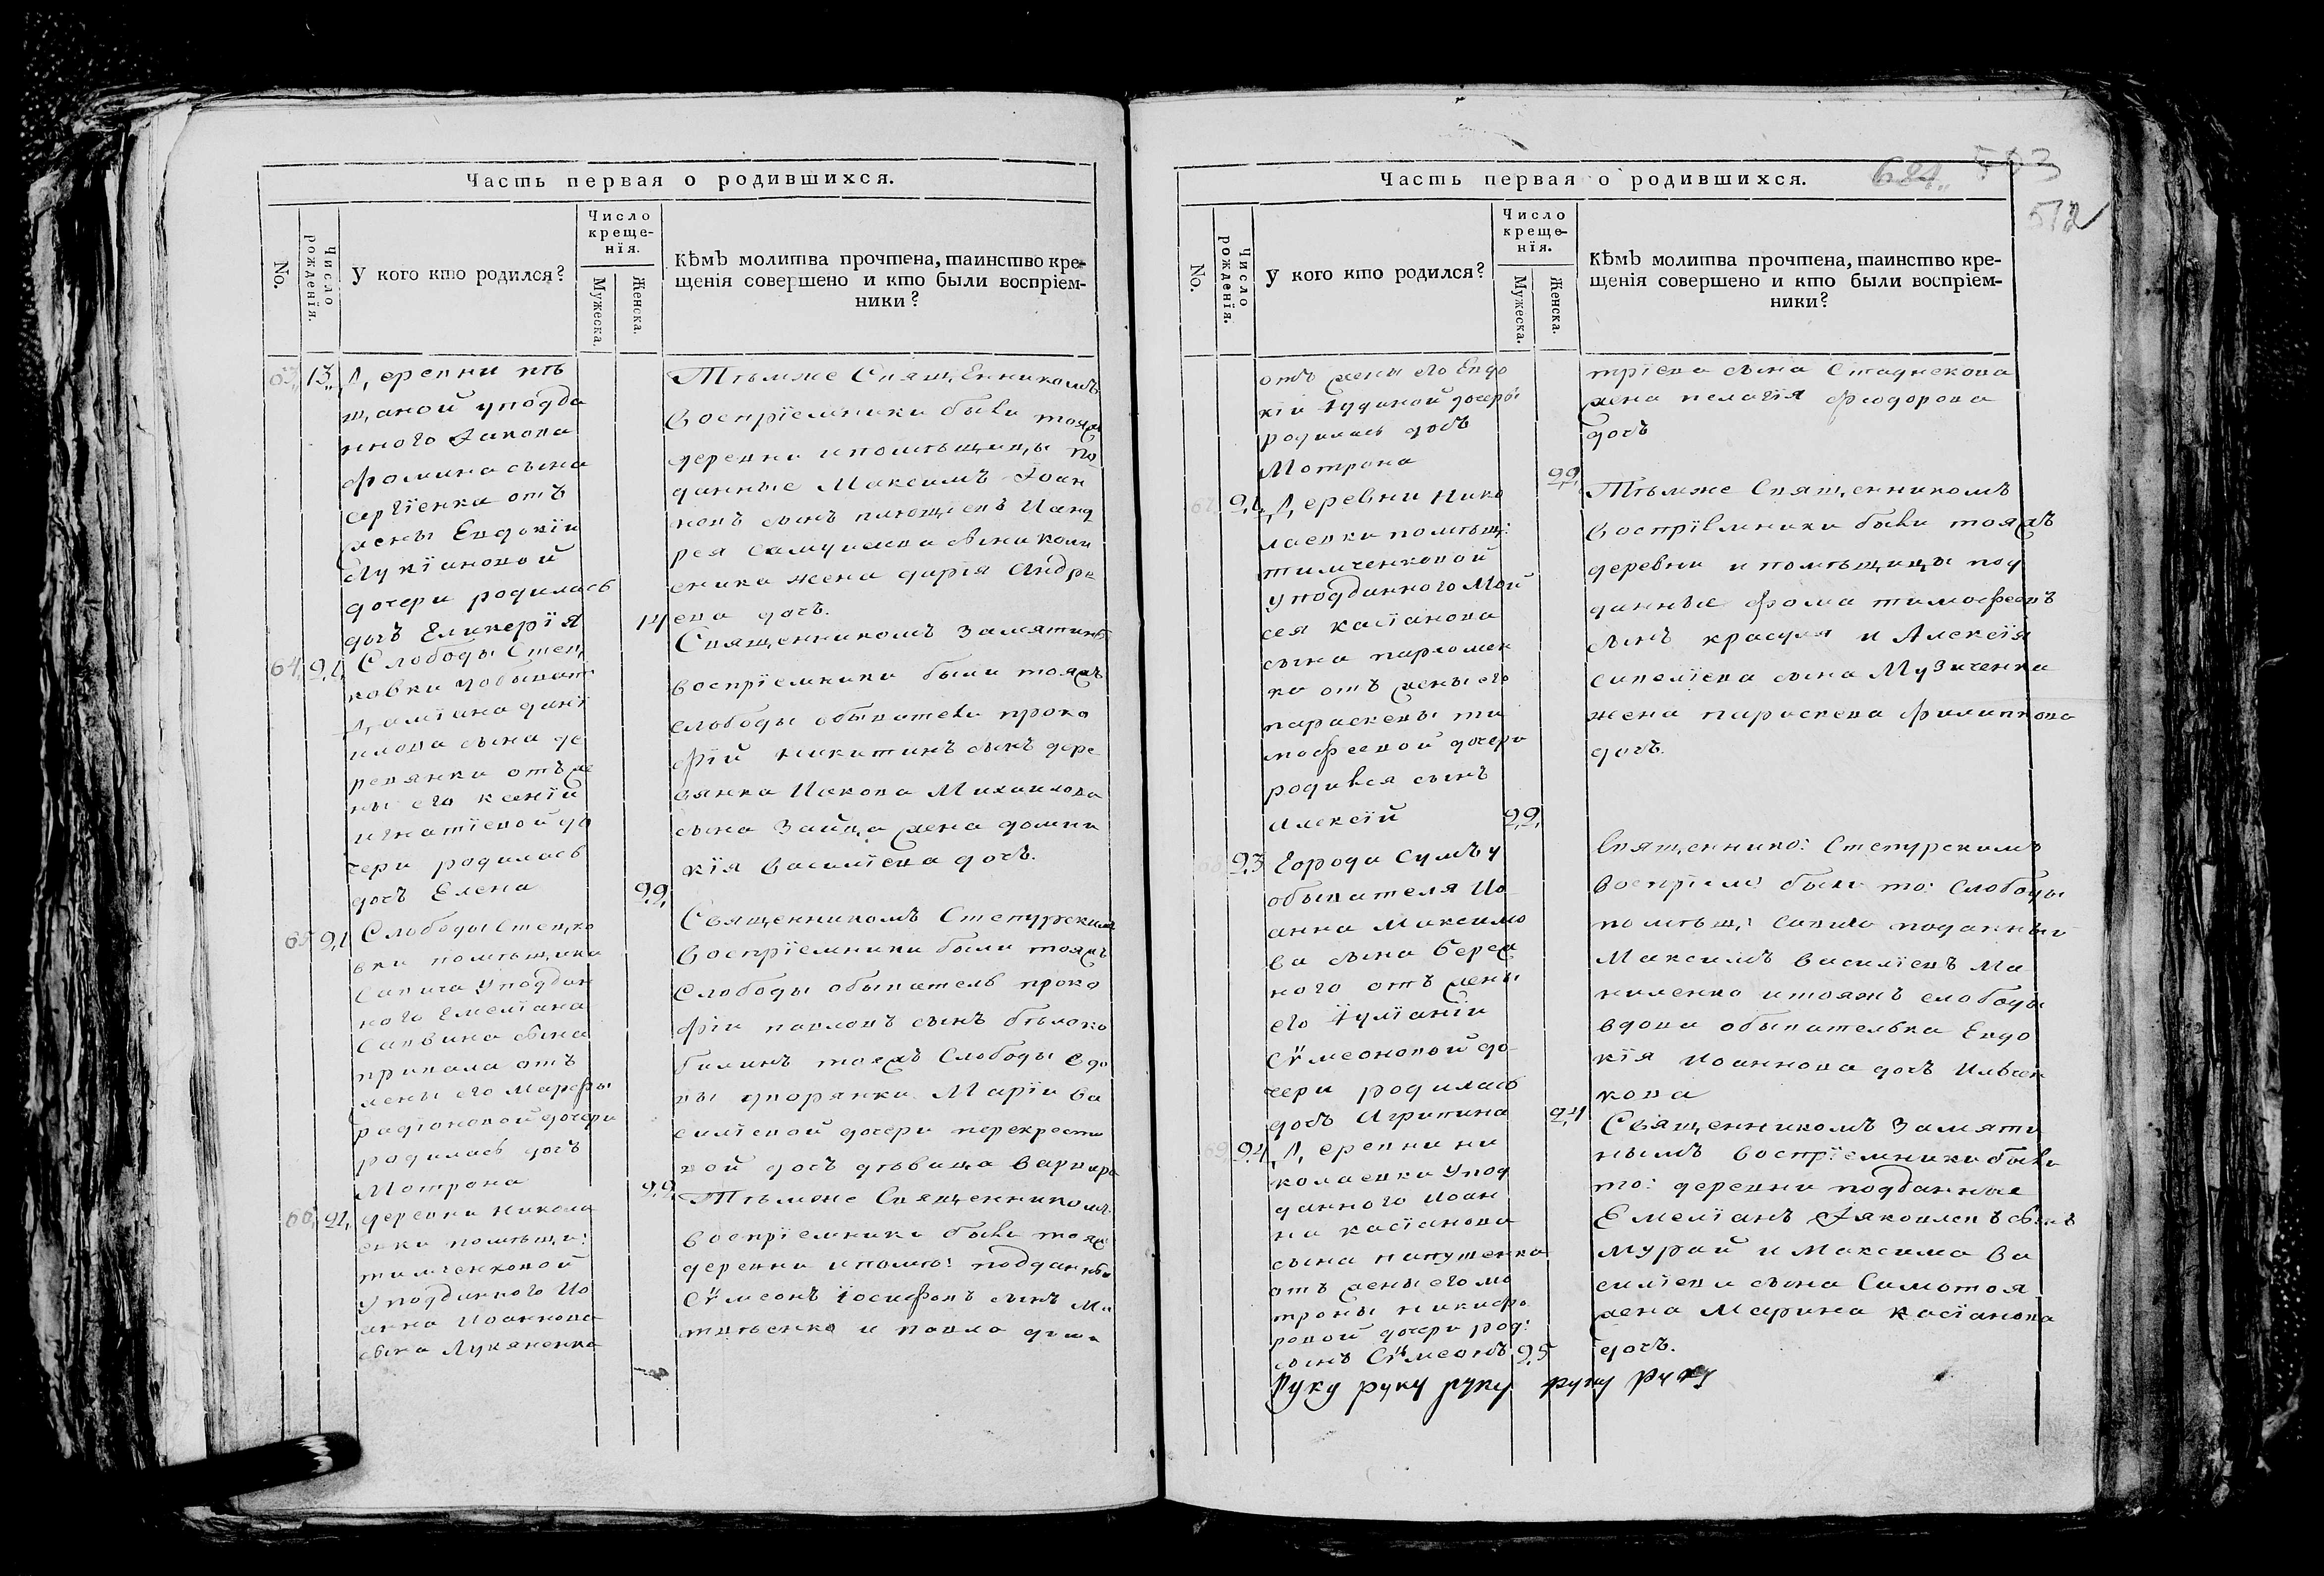 Часть первая о родившихся.
No.
Число рожденїя.
У кого кто родился?
Число
креще-
нїя.
Мужеска.
Женска.
Кѣмъ молитва прочтена, таинство кре-
щенїя совершено и кто были воспрїем-
ники?
63,, 13,, Деревни пѣ
щаной уподда
нного Їакова
Фомина сына
Сергїенка отъ
жены Евдокїи
Лукїановой
дочери родилась
дочъ Гликерїя
14
Тѣмже Священникомъ
воспрїемники были тояжъ
деревни ипомѣщицы по
данные Максимъ Їоан
новъ сынъ Ианд
рея Самуилова сына
жена дарїя Андре
ева дочъ.
64, 21, Слободы Степ
ковки уобыват
Дамїана данї
илова сына де
ревянки отъ же
ны его ксенїи
игнатїевой до
чери родилась
дочъ Елена
22,
Священникомъ Замятинъ
воспрїемники были тояжъ
слободы обыватели проко
фїй никитинъ сынъ дере
вянка Иякова Михаилова
сына Зайца жена домни
кїя василїева дочъ.
65 21 Слободы Степко
вки помѣщика
Савича уподдан
ного Емелїана
Саввина сына
привала отъ
жены его Марѳы
радїоновой дочери
родилась дочъ
Мотрона
22
Священникомъ Степурскимъ
Воспрїемники были тояжъ
Слободы обыватель проко
фїи павловъ сынъ бѣлоко
билинъ тояжъ Слободы вдо
вы дворянки Марїи Ва
силїевой дочери перекрести
вой дочъ дѣвица варвара
66, 21, деревни никола
евки помѣщи:
тимченковой
уподданного Ио
анна Иоаннова
сына Лукяненка
Тѣмже Священникомъ
воспрїемники были тояжъ
деревни ипомѣ: подданны
Сѵмеонъ їосифовъ сынъ Ма
твѣенко и павла дми
Часть первая о родившихся.
684,, 503
512
No.
Число рожденїя.
У кого кто родился?
Число
креще-
нїя.
Мужеска.
Женска.
Кѣмъ молитва прочтена, таинство кре-
щенїя совершено и кто были воспрїем-
ники?
отъ жены его Евдо
кїи Їудиной дочери
родилась дочъ
Мотрона
22,
трїева сына Стаднекова
жена пелагїя Феодорова
дочъ
67, 21, Деревни нико
лаевки помѣщ:
тимченковой
уподданного Мой
сея касїанова
сына пархомен
ка отъ жены его
параскевы ти
мофеевой дочери
родився сынъ
Алексїй
22,
Тѣмже Священникомъ
воспрїемники были тояжъ
деревни и помѣщицы под
данные фома тимофеевъ
сынъ красуля и Алексїя
савелїева сына Музиченка
жена параскева филиппова
дочъ.
68 23 Города Сумъ у
обывателя Ио
анна Максимо
ва сына береж
ного отъ жены
его Їулїанїи
Сѵмеоновой до
чери родилась
дочъ Агрипина
24
Священнико: Степурскимъ
Воспрїем: были то: Слободы
помѣщ: Савича поданный
Максимъ василїевъ Ма
ниленко итояжъ слободы
вдова обывателька Евдо
кїя Иоаннова дочъ Ильчен
кова
69, 24, Деревни ни
колаевки Упод
данного Иоан
на касїанова
сына папушенка
отъ жены его мо
троны никифо
ровой дочери род:
сынъ Сѵмеонъ 25
Священникомъ Замяти
нымъ воспрїемники были
то: деревни подданные
Емелїанъ Їяковлевъ сынъ
мурай и Максима Ва
силїева сына Самотоя
жена Марина касїанова
дочъ.
Руку руку руку руку руку